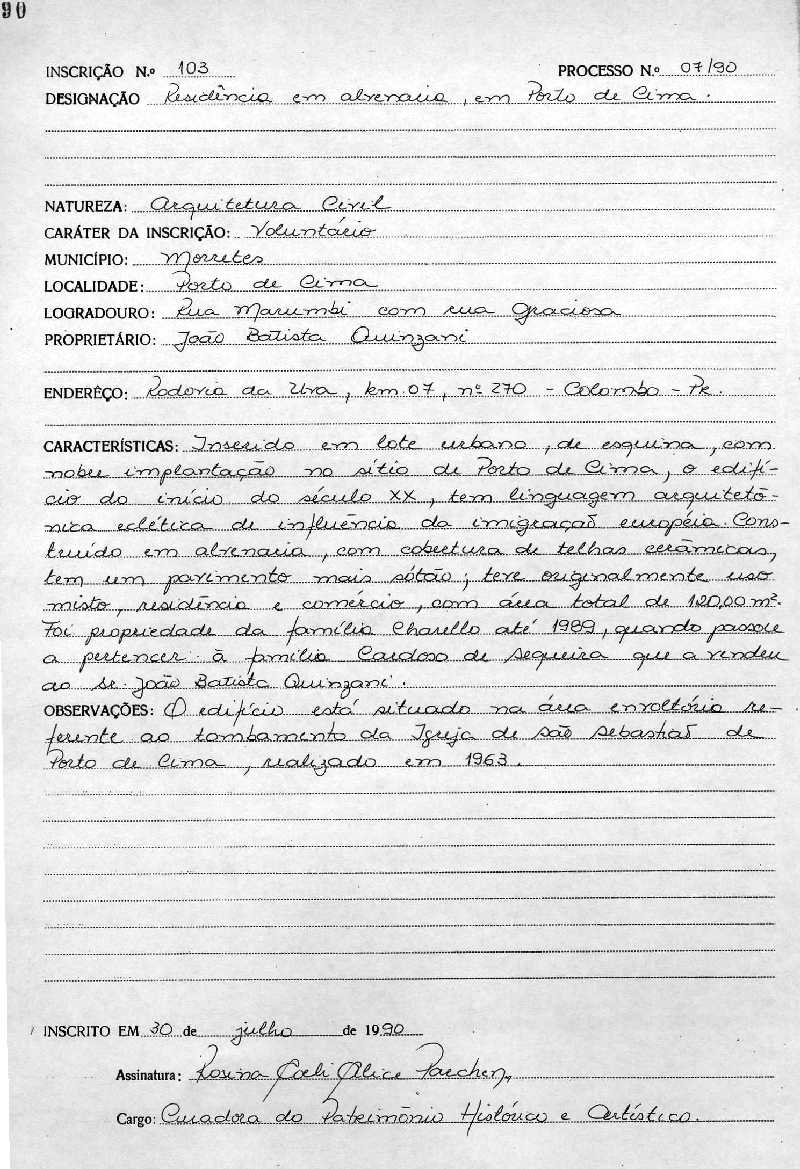 90
INSCRIÇÃO N.º 103 PROCESSO N.º 07/90
DESIGNAÇÃO Residência em alvenaria, em Porto de Cima.
NATUREZA: Arquitetura Civil
CARÁTER DA INSCRIÇÃO: Voluntário
MUNICÍPIO: Morretes
LOCALIDADE: Porto de Cima
LOGRADOURO: Rua Marumbi com rua Graciosa
PROPRIETÁRIO: João Batista Quinzani
ENDERÊÇO: Rodovia da Uva, km.07, nº 270 - Colombo - Pr.
CARACTERÍSTICAS: Inserido em lote urbano, de esquina, com
nobre implantação no sítio de Porto de Cima, o edifí-
cio do início do século XX, tem linguagem arquitetô-
nica eclética de influência da imigração européia. Cons-
truído em alvenaria, com cobertura de telhas cerâmicas,
tem um pavimento mais sótão; teve originalmente uso
misto, residência e comércio, com área total de 120,00 m².
Foi propriedade da família Charello até 1989, quando passou
a pertencer à família Cardoso de Sequeira que a vendeu
ao sr. João Batista Quinzani.
OBSERVAÇÕES: O edifício está situado na área envoltória re-
ferente ao tombamento da Igreja de São Sebastião de
Porto de Cima, realizado em 1963.
INSCRITO EM 30 de julho de 1990
Assinatura: Rosina Alice
Cargo: Curadora do Patrimônio Histórico e Artístico.